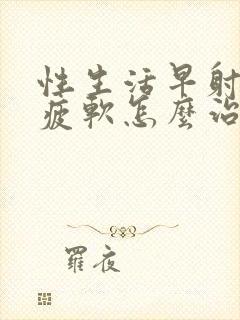 性生活早射
疲軟怎麼治
羅夜